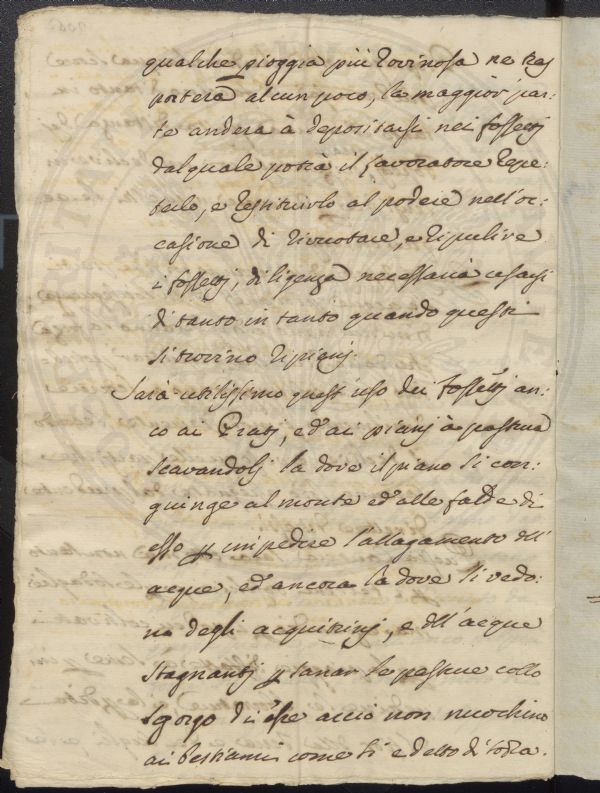 qualche pioggia più rovinosa ne tras
porterà alcun poco, la maggior par-
te anderà à depositarsi nei fossetti
dal quale potrà il lavoratore repe-
terlo, e restituirlo al podere nell'oc-
casione di rivuotare, e ripulire
i fossetti, diligenza necessaria usarsi
di tanto in tanto quando questi
si trovino ripieni.
Sarà utilissimo quest'uso dei fossetti an-
co ai Prati, ed ai piani à pastura
scavandoli la dove il piano si con-
giunge al monte ed alle falde di
esso p impedire l'allagamento dell'
acque, ed ancora la dove si vedo-
no degli acquitrini, e dell'acque
stagnanti p sanar le pasture collo
sgorgo di esse acciò non nuochino
ai bestiami come si è detto di sopra.